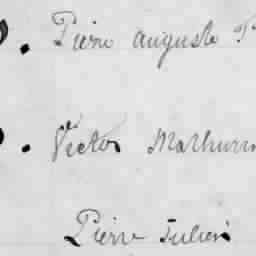 Pierre auguste
Victor Mathurin
Pierre Julien